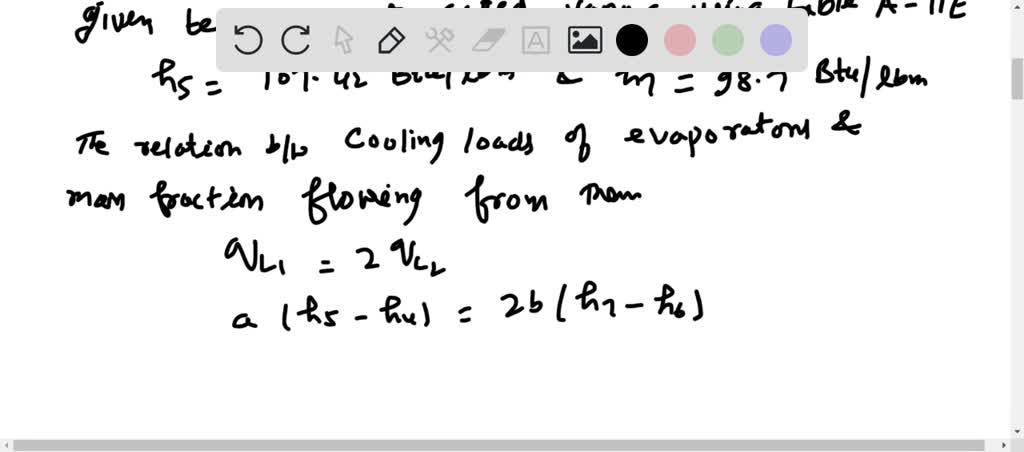 given be Table A-11E
h5 = 107.42 Btu/lbm & h7 = 98.7 Btu/lbm
The relation b/w Cooling loads of evaporators &
mass fraction flowing from them
qL1 = 2 qL2
a (h5 - h4) = 2b (h7 - h6)